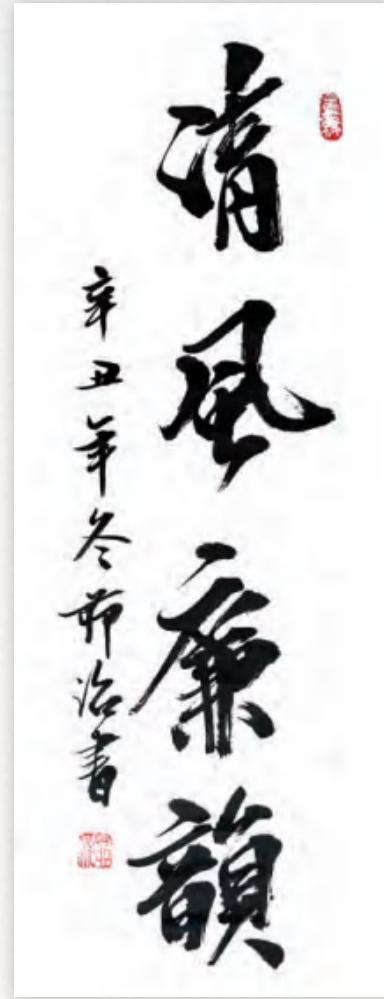 清風廉韻
辛丑年冬節治書